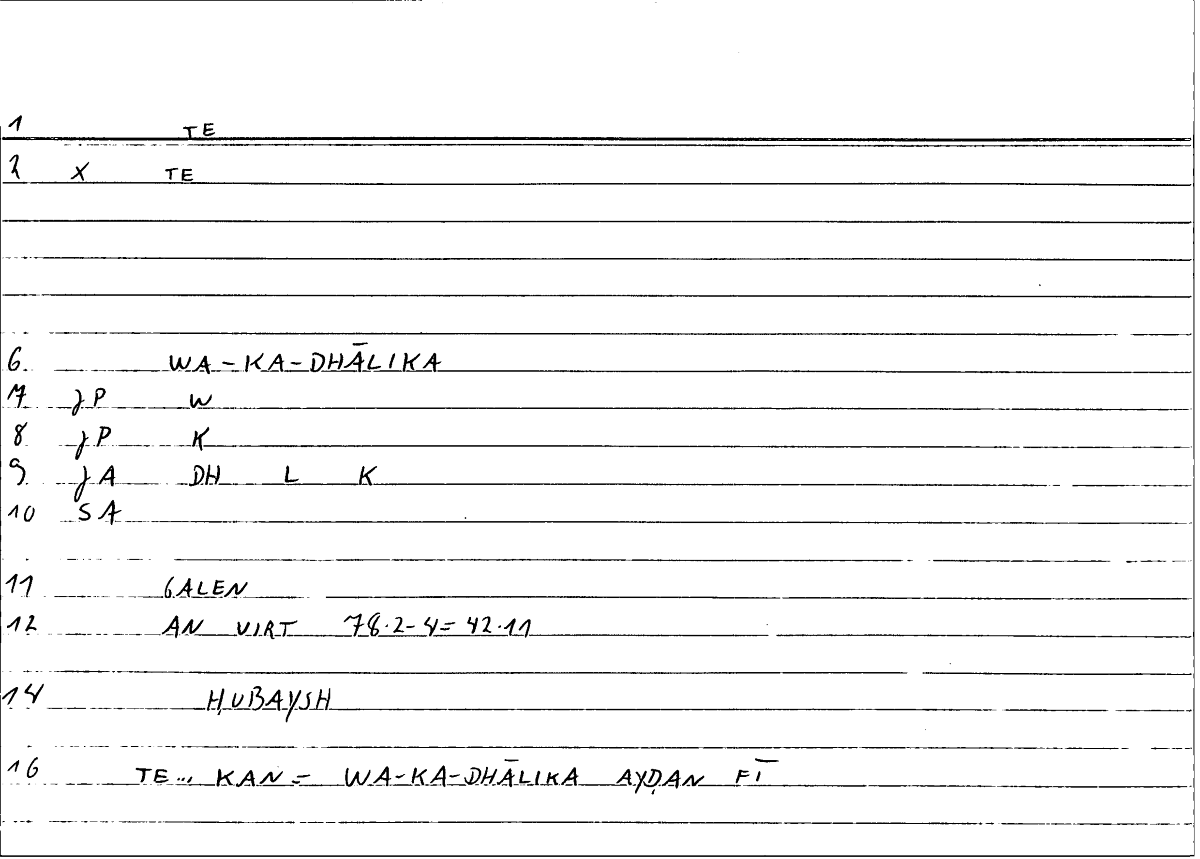 1 TE
2 X TE
6 WA-KA-DHĀLIKA
7 JP W
8 JP K
9 JA DH L K
10 SA
11 GALEN
12 AN VIRT 78.2-4=42.11
14 ḤUBAYSH
16 TE... KAN = WA-KA-DHĀLIKA AYḌAN FĪ